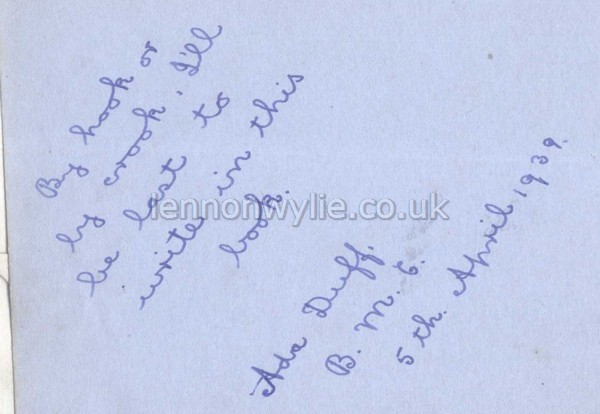 By hook or
by crook, I'll
be last to
write in this
book.
Ada Duff.
B. M. C.
5th. April 1939.
lennonwylie.co.uk